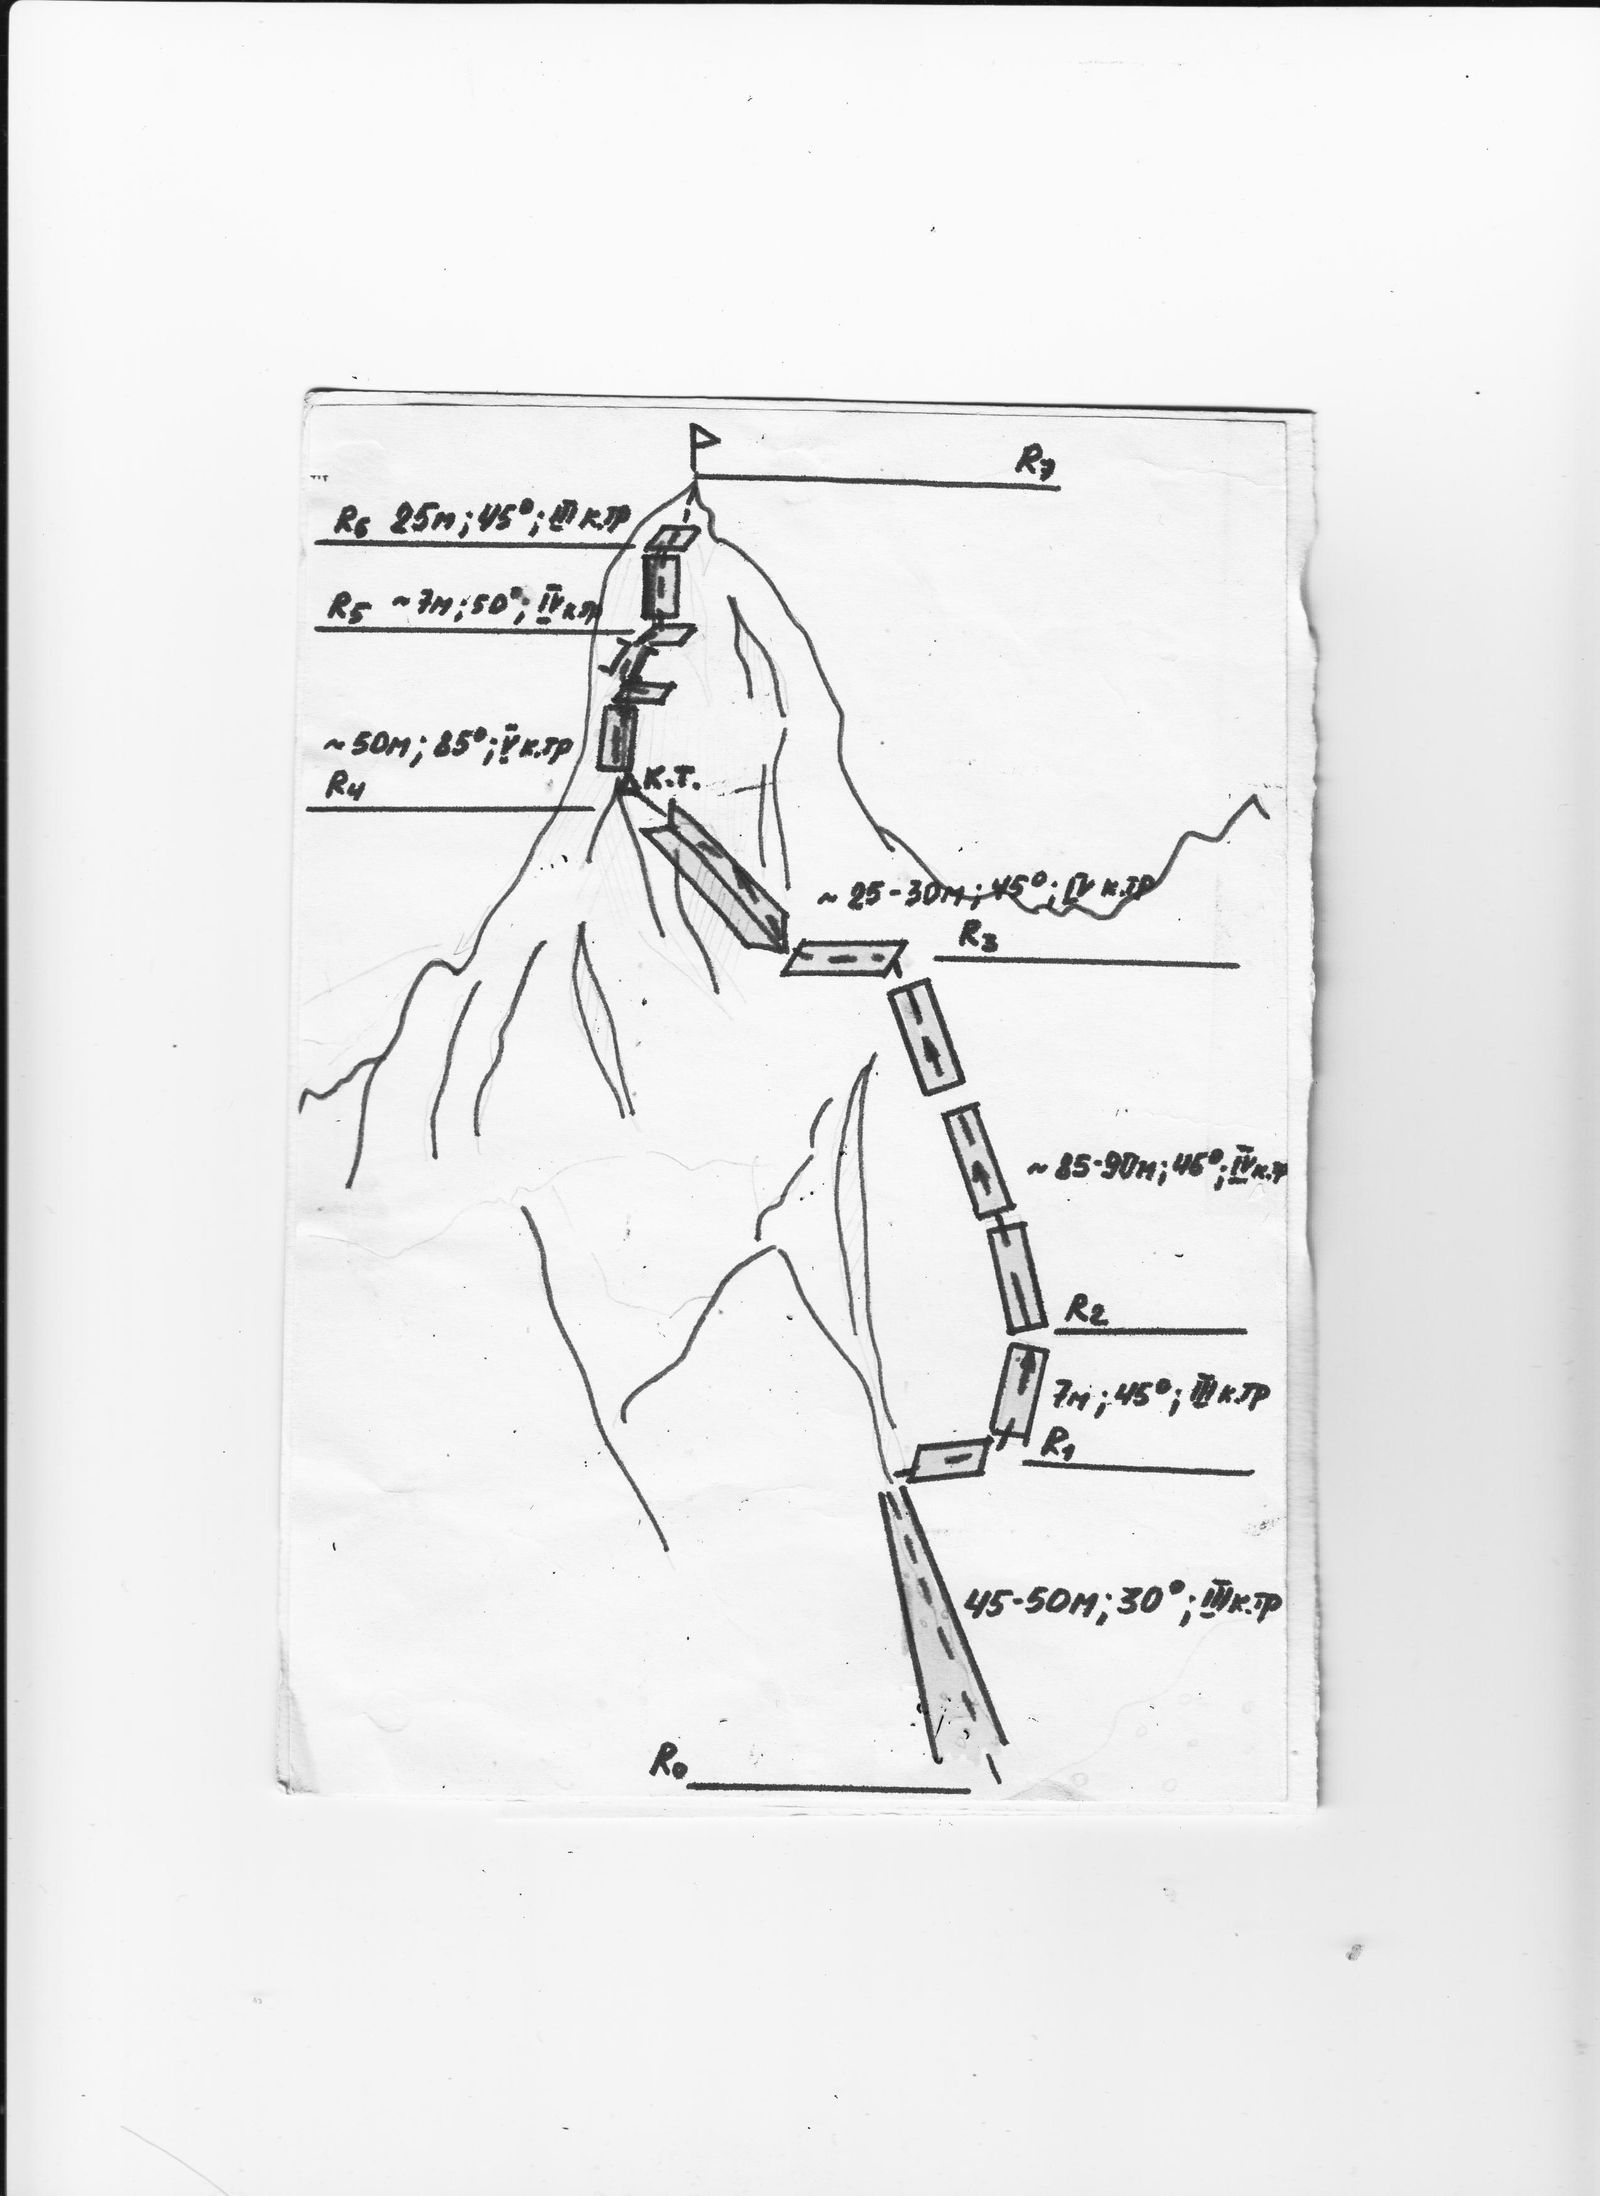 R7
R6 25м; 45°; III к.тр
R5 ~7м; 50°; IV к.тр
~50м; 85°; V к.тр
R4
К.Т.
~ 25-30м; 45°; IV к.тр
R3
~ 85-90м; 45°; IV к.тр
R2
7м; 45°; III к.тр
R1
45-50м; 30°; III к.тр
R0